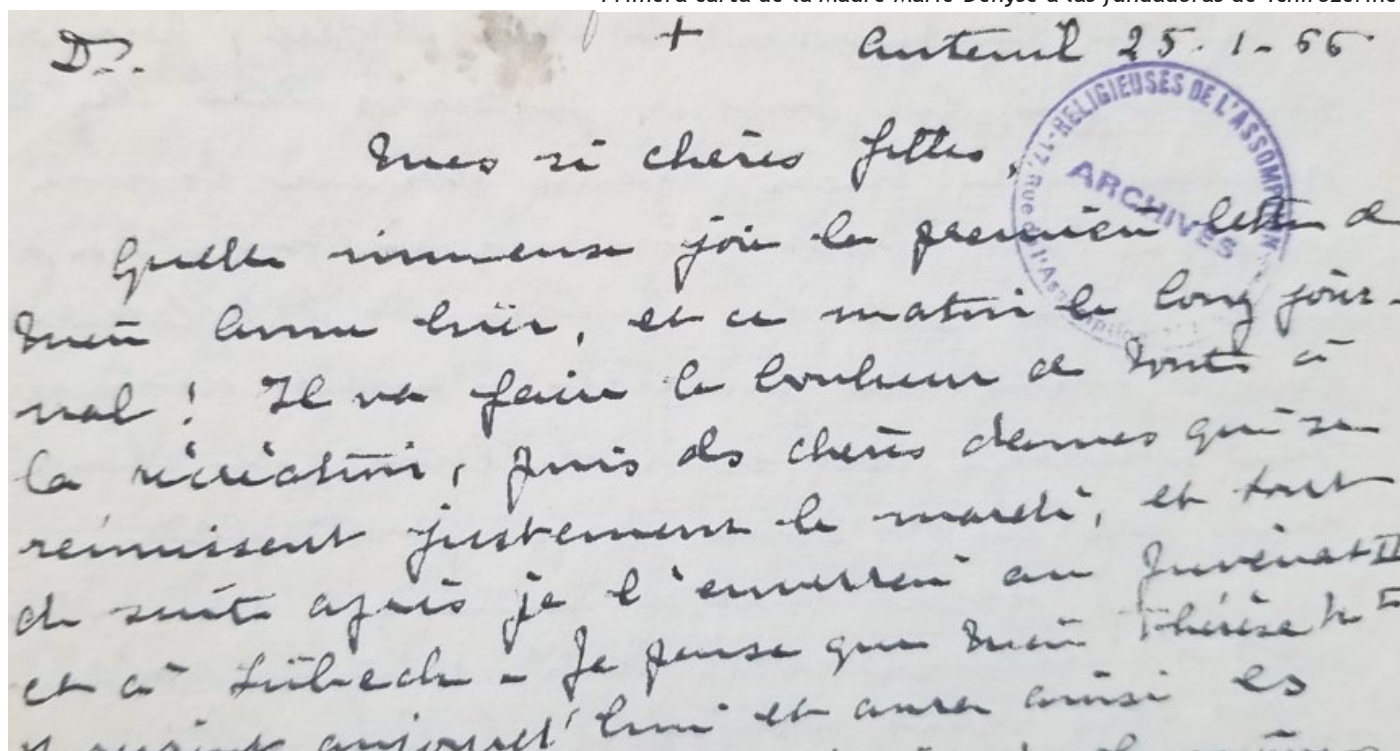 Primera carta de la Madre Marie Denyse a las fundadoras de
D.. + Auteuil 25.1-66
RELIGIEUSES DE L'ASSOMPTION
17, Rue de l'Assomption
ARCHIVES
Mes si chères filles,
Quelle immense joie la première lettre de
Mère Anne hier, et ce matin le long jour-
nal ! Il va faire le bonheur de toutes à
la récréation, puis des chères dames qui se
réunissent justement le mardi, et tout
de suite après je l'enverrai au Juvénat II
et à Lübeck - Je pense que Mère Thérèse
aujourd'hui et aura ainsi